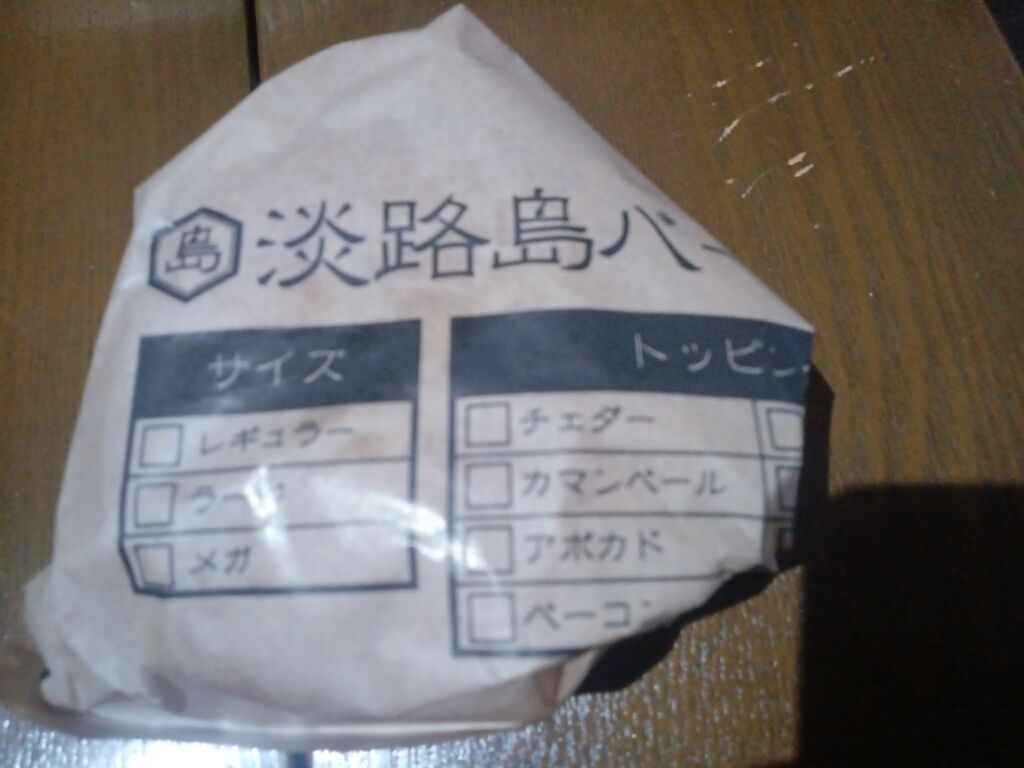 島 淡路島バー
サイズ
レギュラー
ラージ
メガ
トッピン
チェダー
カマンベール
アボカド
ベーコン